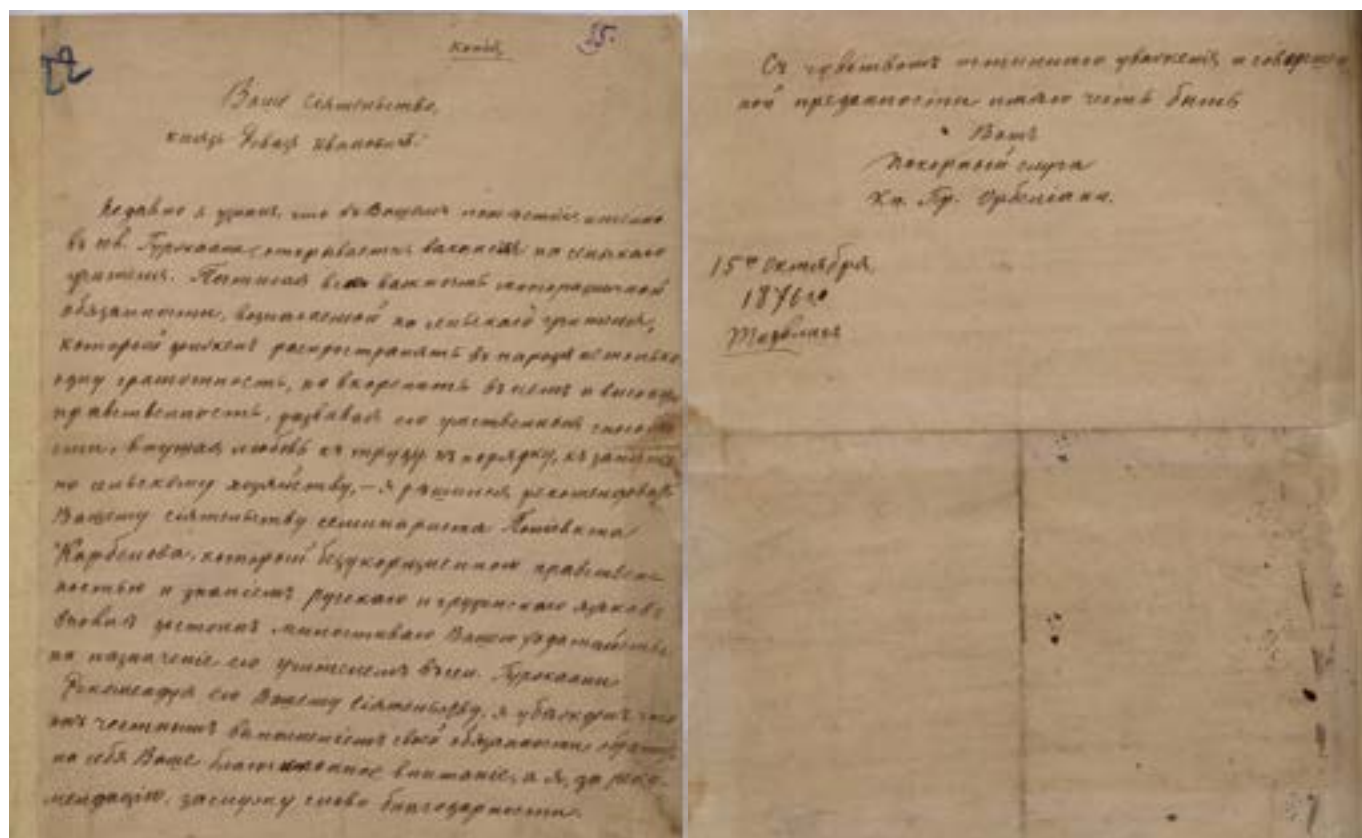 Копія
35.
22
Ваше Сіятельство,
князь Иванович!
Недавно я узналъ, что въ Вашемъ именно
въ открывается вакансія на сельскаго
учителя. Понимая всю важность
обязанности, возлагаемой на сельскаго учителя,
который долженъ распространять въ народѣ не только
одну грамотность, но вкоренять въ немъ и высокую
нравственность, развивая его умственныя способно
сти, внушая любовь къ труду, къ порядку, къ занятію
по сельскому хозяйству, — я рѣшился рекомендовать
Вашему сіятельству семинариста
Карбелова, который безукоризненною нравствен
ностью и знаніемъ русскаго и грузинскаго языковъ
вполнѣ достоинъ милостиваго Вашего ходатайства
на назначеніе его учителемъ въ сел.
Рекомендуя его Вашему Сіятельству, я убѣжденъ что
онъ честнымъ выполненіемъ своей обязанности обратитъ
на себя Ваше благосклонное вниманіе, а я, за реко-
мендацію, заслужу слово благодарности.
Съ чувствомъ истиннаго уваженія и совершен
ной преданности имѣю честь быть
Вашъ
Покорный слуга
Кн. Гр. Орбеліани.
15го Октября
1876го